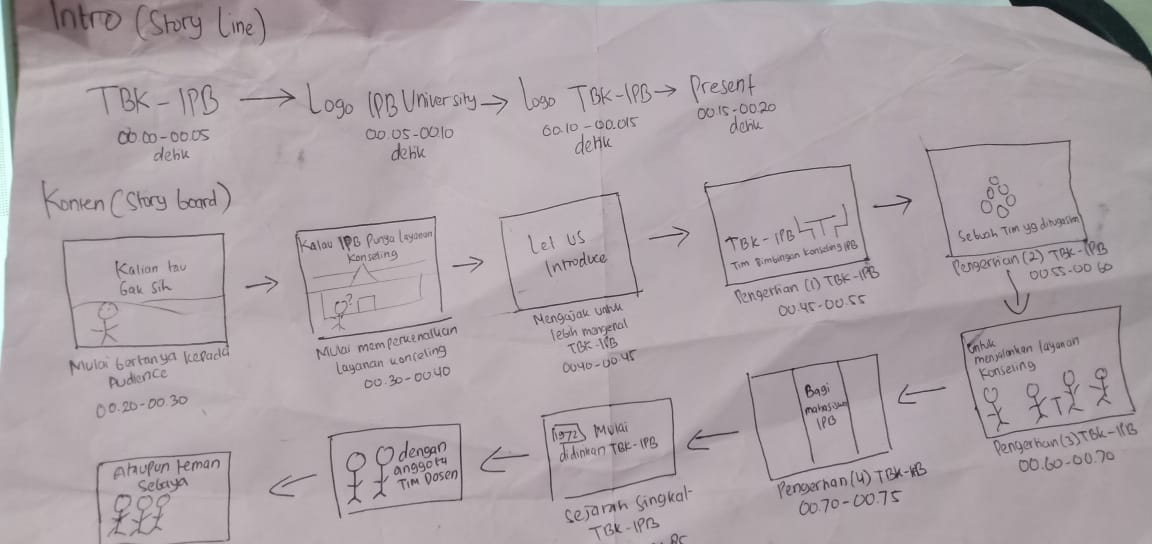 Intro (Story Line)
TBK-IPB → Logo IPB University → Logo TBK-IPB → Present
00.00-00.05
detik
00.05-00.10
detik
00.10-00.015
detik
00.15-00.20
detik
Konten (Story board)
Kalian tau
Gak sih
Mulai bertanya kepada
Audience
00.20-00.30
Kalau IPB Punya layanan
Konseling
Mulai memperkenalkan
layanan konseling
00.30-00.40
Let US
Introduce
Mengajak untuk
lebih mengenal
TBK-IPB
00.40-00.45
TBK-IPB
Tim Bimbingan Konseling IPB
Pengertian (1) TBK-IPB
00.45-00.55
Sebuah Tim yg ditugaskan
Pengertian (2) TBK-IPB
00.55-00.60
Untuk
menjalankan layanan
Konseling
Pengertian (3) TBK-IPB
00.60-00.70
Bagi
mahasiswa
IPB
Pengertian (4) TBK-IPB
00.70-00.75
1972 Mulai
didirikan TBK-IPB
Sejarah Singkat
TBK-IPB
dengan
anggota
Tim Dosen
Ataupun teman
Sebaya